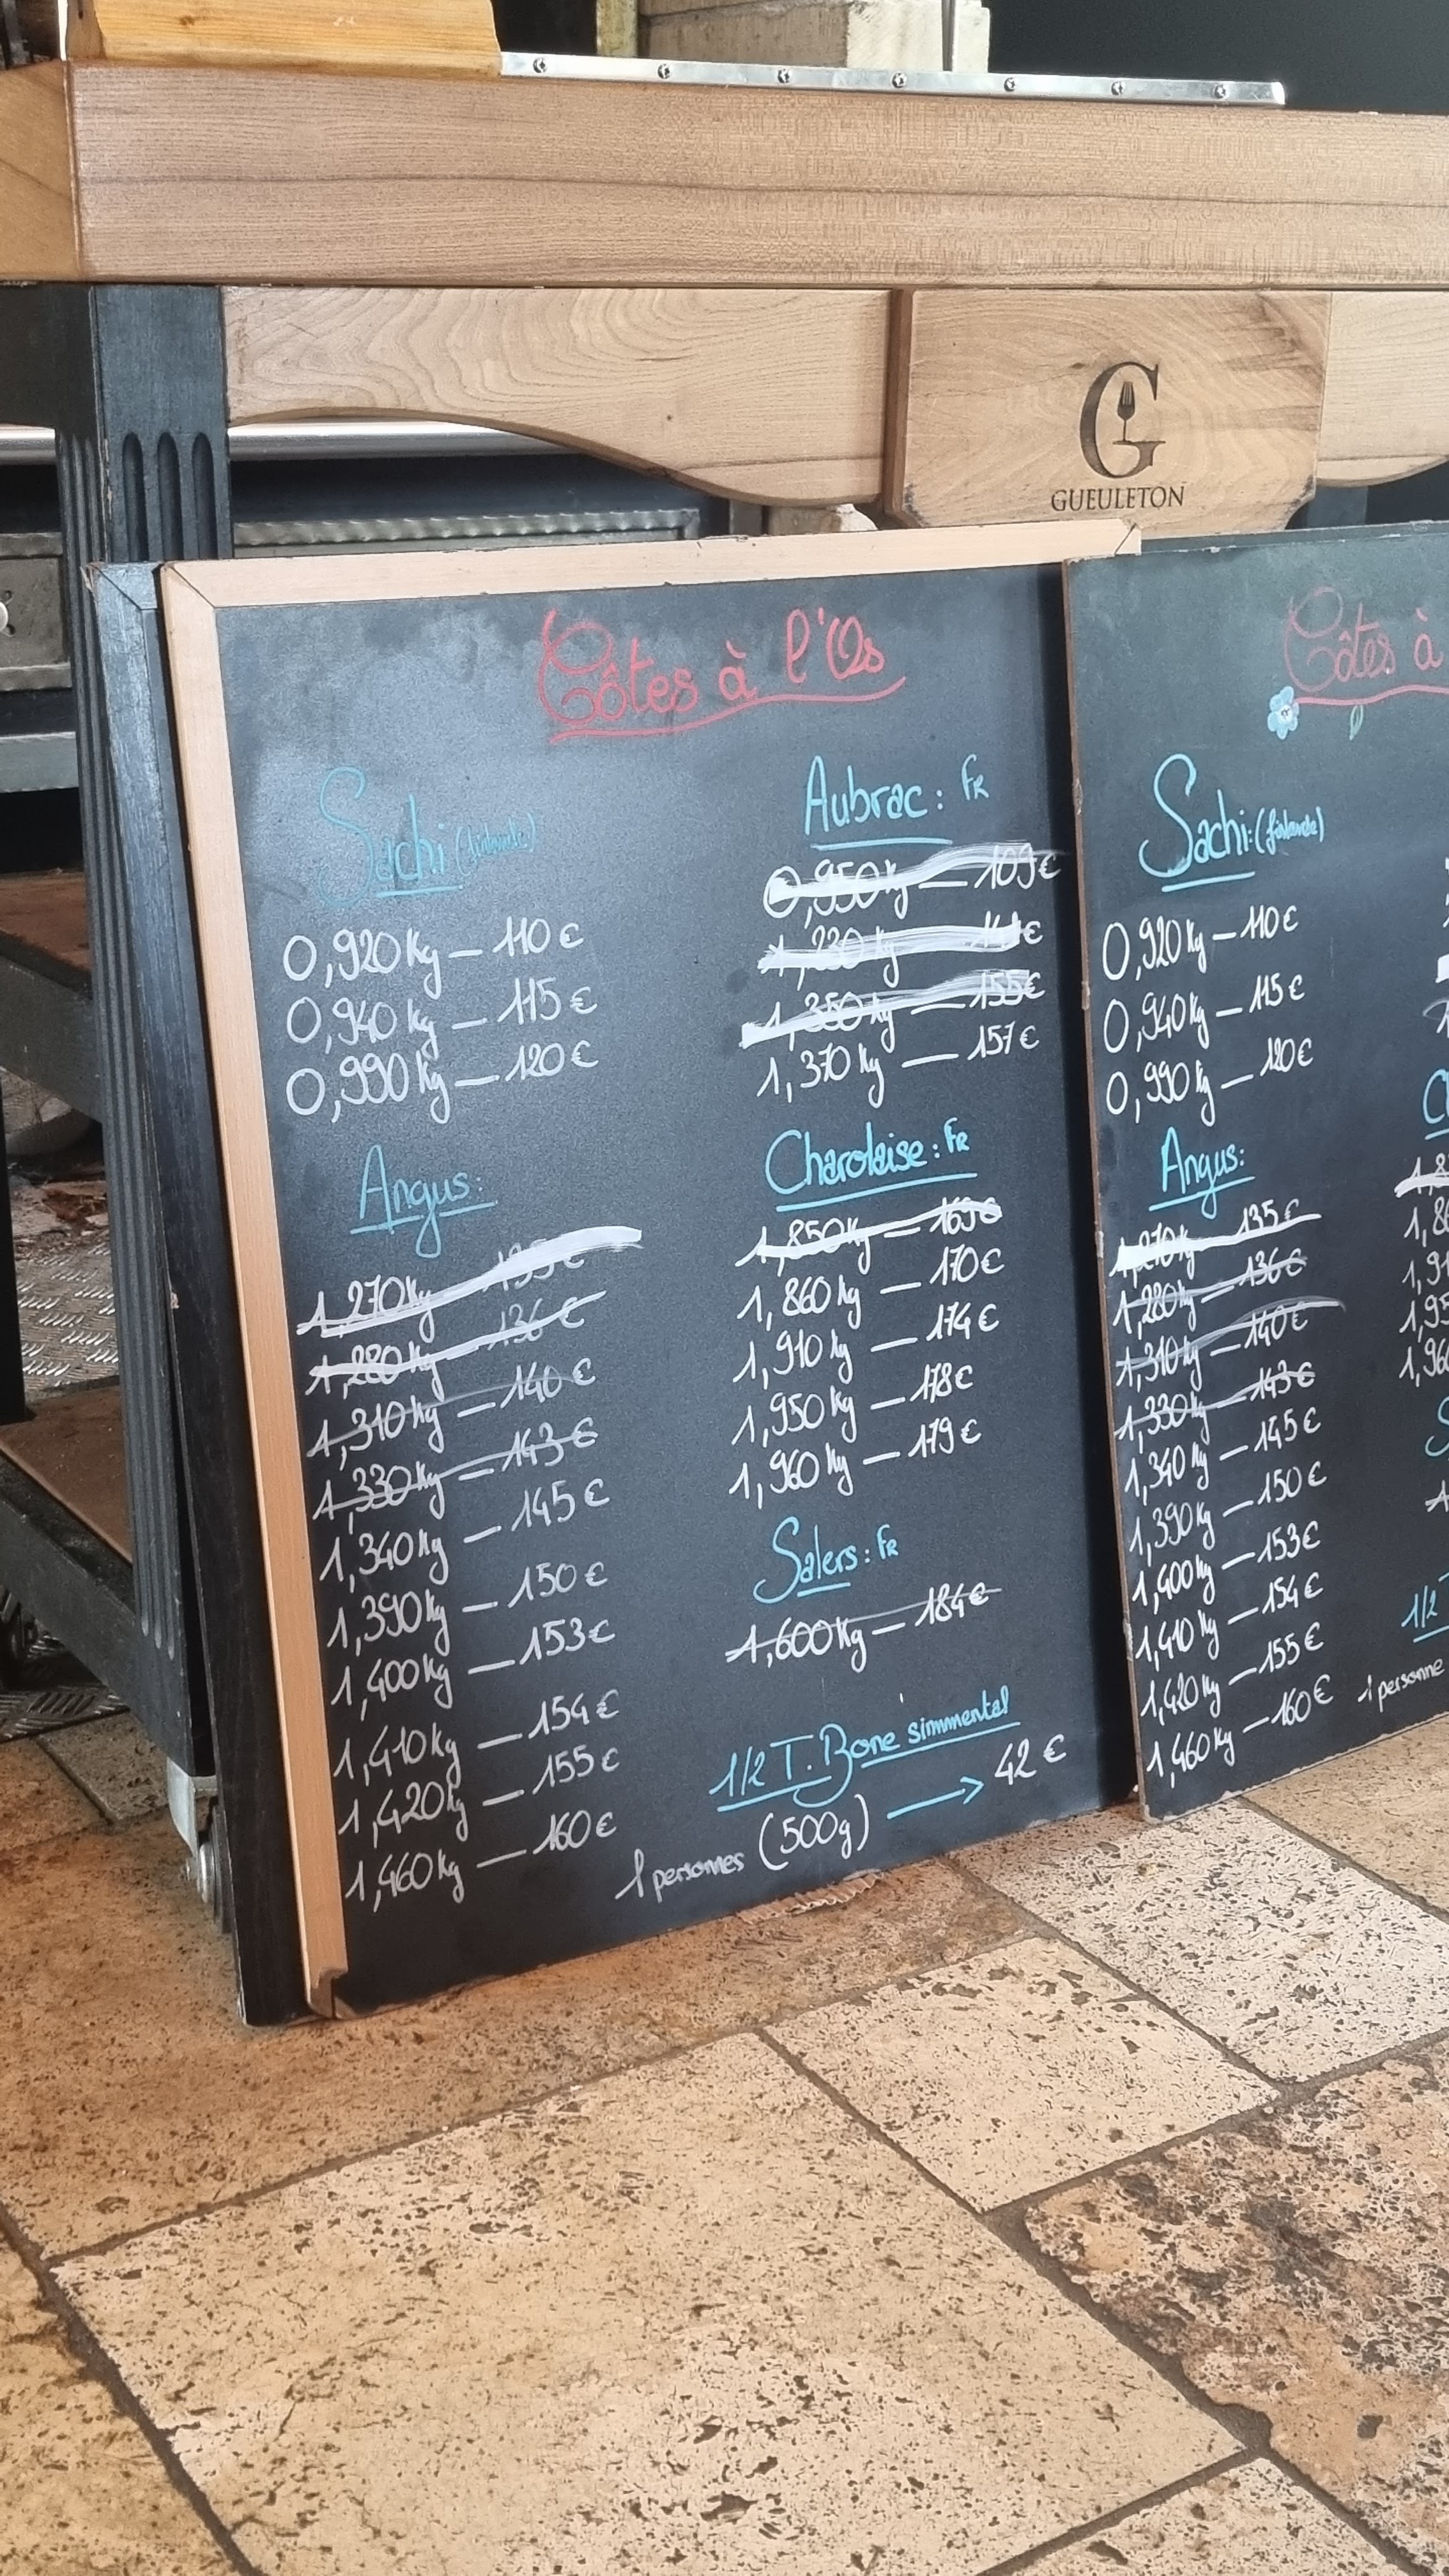 G
GUEULETON
Côtes à l'Os
Sachi (finlande)
0,920Kg — 110€
0,940Kg — 115€
0,990Kg — 120€
Angus:
1,270Kg 135€
1,280Kg — 136€
1,310Kg — 140€
1,330Kg — 143€
1,340Kg — 145€
1,390Kg — 150€
1,400Kg — 153€
1,410Kg — 154€
1,420Kg — 155€
1,460Kg — 160€
Aubrac: FR
0,950Kg — 109€
1,230Kg 141€
1,350Kg — 155€
1,370Kg — 157€
Charolaise: FR
1,850Kg — 169€
1,860Kg — 170€
1,910Kg — 174€
1,950Kg — 178€
1,960Kg — 179€
Salers: FR
1,600Kg — 184€
1/2 T.Bone simmental
1 personnes (500g) → 42€
Côtes à
Sachi: (finlande)
0,920Kg — 110€
0,940Kg — 115€
0,990Kg — 120€
Angus:
1,270Kg — 135€
1,280Kg — 136€
1,310Kg — 140€
1,330Kg — 143€
1,340Kg — 145€
1,390Kg — 150€
1,400Kg — 153€
1,410Kg — 154€
1,420Kg — 155€
1,460Kg — 160€
1,8
1,86
1,91
1,95
1,960
1/2
1 personne